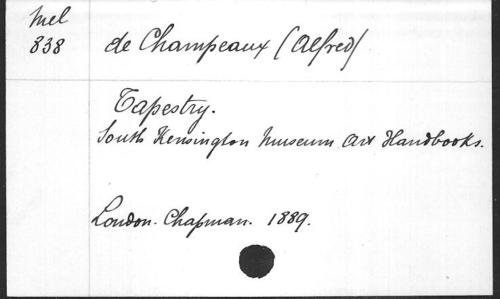 Mel
838
de Champeaux (Alfred)
Tapestry.
South Kensington Museum Art Handbooks.
London. Chapman. 1889.